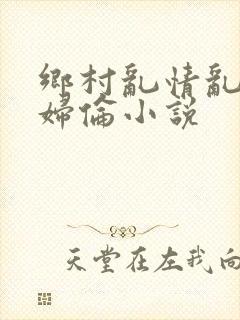 鄉村亂情亂
婦倫小說
天堂在左我向